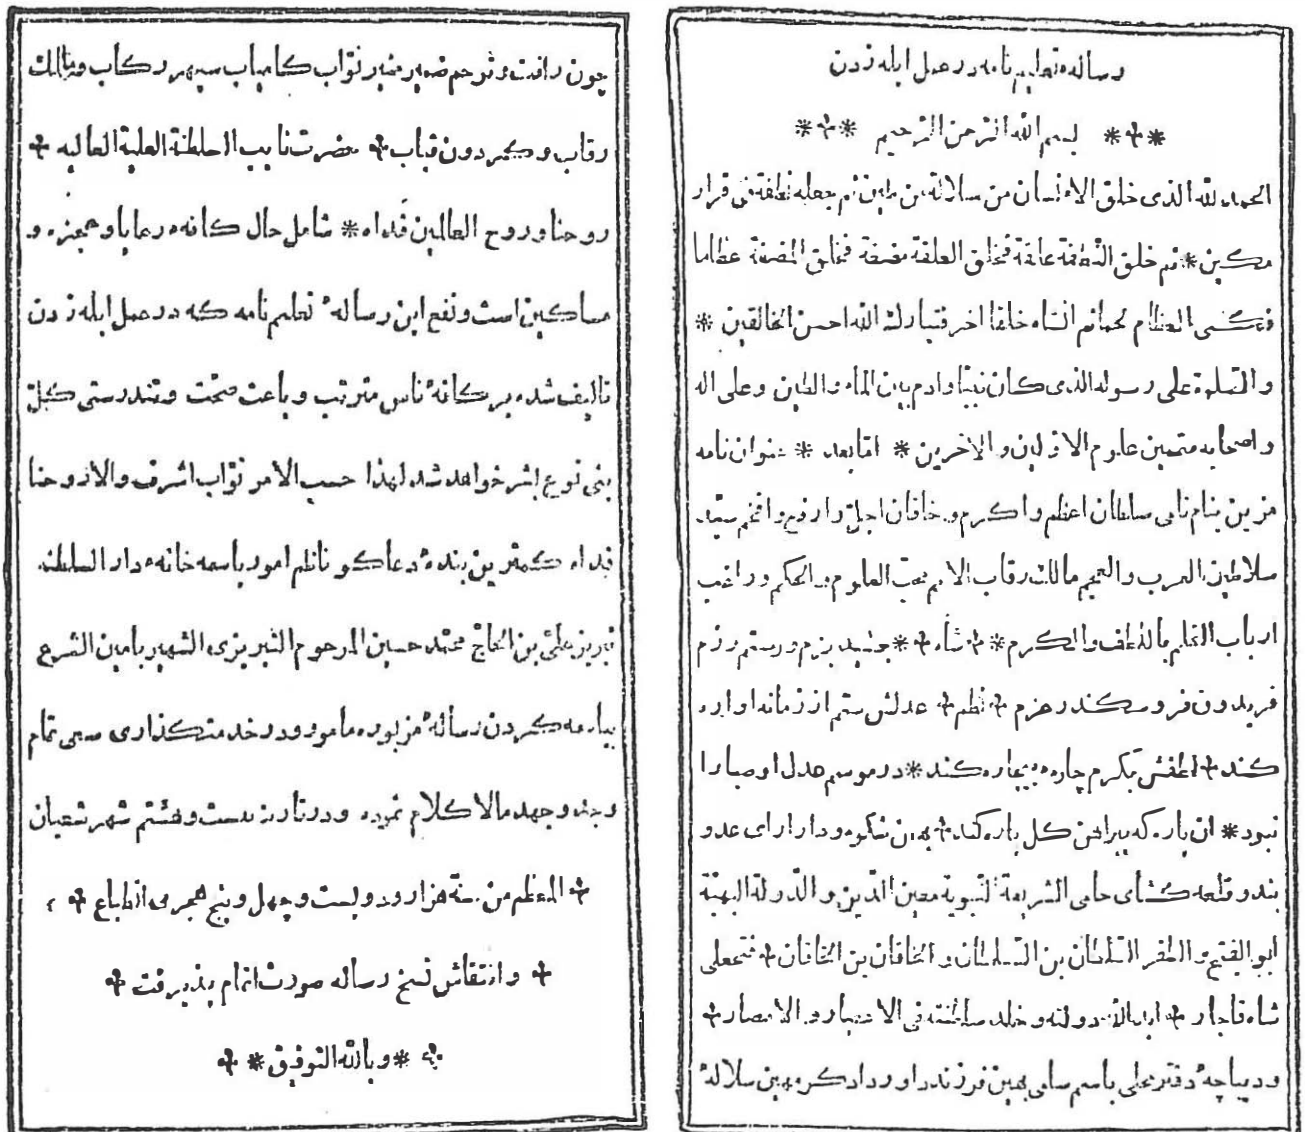 رساله تعلیم نامه در عمل ابله زدن
* ✢ * بسم الله الرحمن الرحیم * ✢ *
الحمد لله الذی خلق الانسان من سلالة من طین ثم جعله نطفة فی قرار
مکین * ثم خلق النطفة علقة فخلق العلقة مضغة فخلق المضغة عظاما
فکسی العظام لحما ثم انشاه خلقا اخر فتبارک الله احسن الخالقین *
و الصلوة علی رسوله الذی کان نبیّا و ادم بین الماء و الطین و علی اله
و اصحابه متممین علوم الاوّلین و الاخرین * امّا بعد * عنوان نامه
مزین بنام نامی سلطان اعظم و اکرم و خاقان اجلّ و ارفع و افخم سیّد
سلاطین العرب و العجم مالک رقاب الامم محبّ العلوم و الحکم و راغب
ارباب القلم باللطف و الکرم * ✢ شاه ✢ * جمشید بزم و رستم رزم
فریدون فر و سکندر عزم ✢ نظم ✢ عدلش ستم از زمانه اواره
کند ✢ لطفش بکرم چاره بیچاره کند * در موسم عدل او صبا را
نبود * ان یاره که پیراهن کل پاره کند ✢ بهمن شکوه و دارا رای عدو
بند و قلعه کشای حامی الشریعة النبویة معین الدّین و الدّولة البهیّة
ابو الفتح و الظفر السّلطان بن السّلطان و الخاقان بن الخاقان ✢ فتحعلی
شاه قاجار ✢ ابد الله دولته و خلد سلطنته فی الاعصار و الامصار ✢
و دیباچهٔ دفتر محلی باسم سامی بهین فرزند داود داد کر مهین سلالهٔ
چون رافت و ترحم ضمیر منیر نوّاب کامیاب سپهر رکاب و مالک
رقاب و کردون قباب ✢ حضرت نایب السلطنة العلیة العالیه ✢
روحنا و روح العالمین فداه * شامل حال کافه رعایا و عجزه و
مساکین است و نفع این رسالهٔ تعلیم نامه که در عمل ابله زدن
تالیف شده بر کافهٔ ناس مترتب و باعث صحّت و تندرستی کلّ
بنی نوع بشر خواهد شد لهذا حسب الامر نوّاب اشرف والا روحنا
فداه کمترین بندهٔ دعاکو ناظم امور باسمه خانه دار السلطنه
تبریز علیّ بن الحاجّ محمّد حسین المرحوم التبریزی الشهیر بامین الشرع
بباسمه کردن رسالهٔ مزبوره مامور و در خدمتکذاری سعی تمام
و جدّ و جهد مالا کلام نموده و در تاریخ بیست و هشتم شهر شعبان
✢ المعظم من سنة هزار و دویست و چهل و پنج هجری انطباع ✢
✢ و انتقاش نسخ رساله صورت اتمام پذیرفت ✢
✢ * و بالله التوفیق * ✢